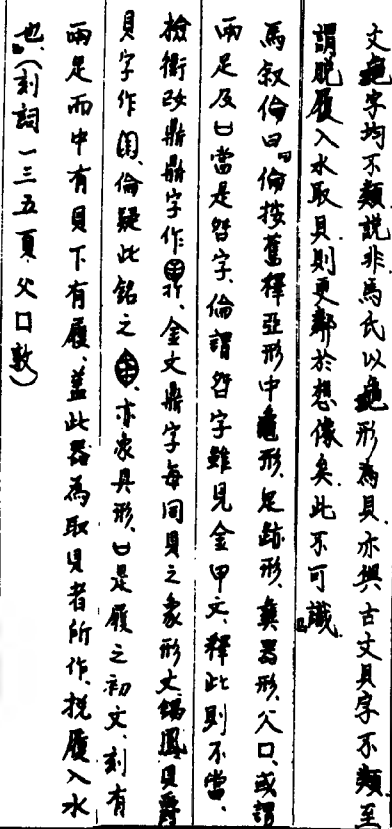 文龜字均不類說非馬氏以龜形為貝亦與古文貝字不類至
謂脫履入水取貝則更鄰於想像矣此不可識
馬叙倫曰「倫按舊釋亞形中龜形、足跡形、彝器形、父口、或謂
兩足及口當是字、倫謂字雖見金甲文、釋此則不當、
檢衛改鼎鼎字作、金文鼎字每同貝之象形文鳳貝爵
貝字作、倫疑此銘之、亦象貝形、口是履之初文、刻有
兩足而中有貝下有履、蓋此器為取貝者所作、挩履入水
也」（刻詞一三五頁父口敦）